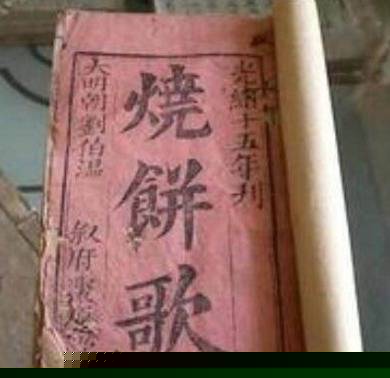 光緒十五年刊
燒餅歌
大明朝劉伯溫
叙府